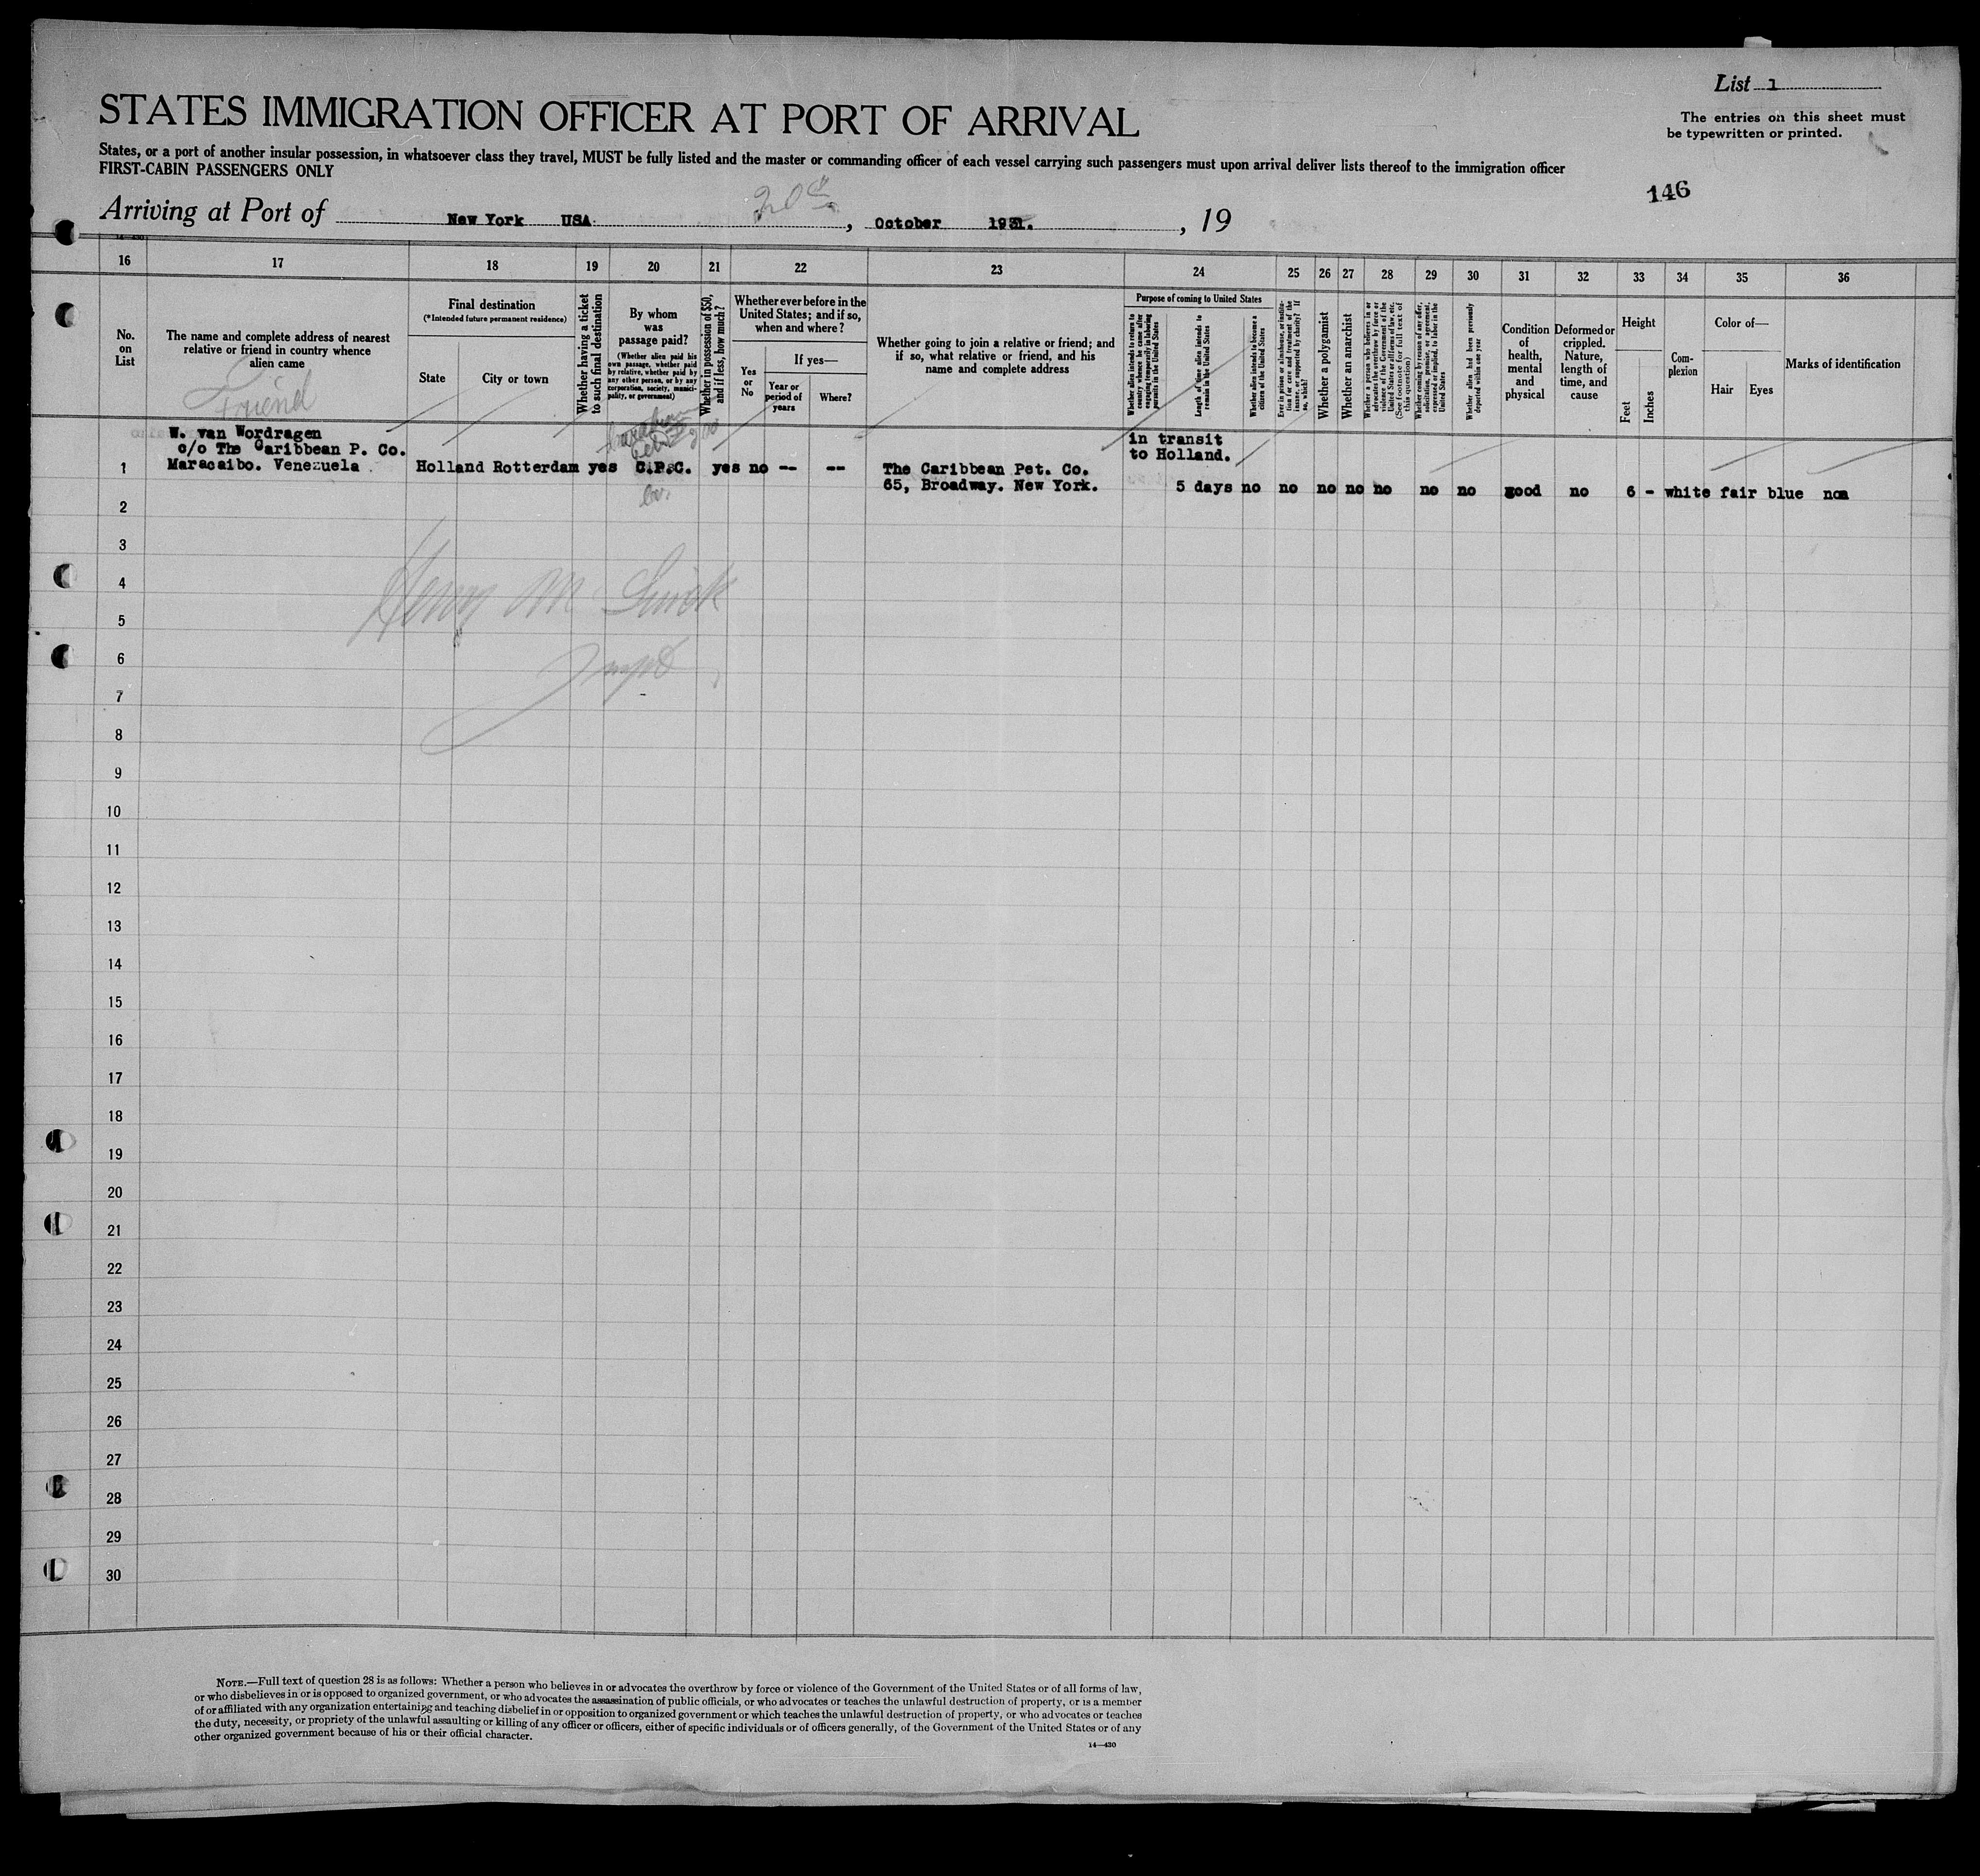 List 1
The entries on this sheet must
be typewritten or printed.
STATES IMMIGRATION OFFICER AT PORT OF ARRIVAL
States, or a port of another insular possession, in whatsoever class they travel, MUST be fully listed and the master or commanding officer of each vessel carrying such passengers must upon arrival deliver lists thereof to the immigration officer
FIRST-CABIN PASSENGERS ONLY
146
Arriving at Port of New York USA. 20th, October 1931., 19
16 17 18 19 20 21 22 23 24 25 26 27 28 29 30 31 32 33 34 35 36
No.
on
List
The name and complete address of nearest
relative or friend in country whence
alien came
Friend
Final destination
(*Intended future permanent residence)
State
City or town
Whether having a ticket
to such final destination
By whom
was
passage paid?
(Whether alien paid his
own passage, whether paid
by relative, whether paid by
any other person, or by any
corporation, society, munici-
pality, or government)
Whether in possession of $50,
and if less, how much?
Whether ever before in the
United States; and if so,
when and where?
Yes
or
No
If yes—
Year or
period of
years
Where?
Whether going to join a relative or friend; and
if so, what relative or friend, and his
name and complete address
Purpose of coming to United States
Whether alien intends to return to
country whence he came after
engaging temporarily in laboring
pursuits in the United States
Length of time alien intends to
remain in the United States
Whether alien intends to become a
citizen of the United States
Ever in prison or almshouse, or institu-
tion for care and treatment of the
insane, or supported by charity? If
so, which?
Whether a polygamist
Whether an anarchist
Whether a person who believes in or
advocates the overthrow by force or
violence of the Government of the
United States or all forms of law, etc.
(See footnote for full text of
this question)
Whether coming by reason of any offer,
solicitation, promise, or agreement,
expressed or implied, to labor in the
United States
Whether alien had been previously
deported within one year
Condition
of
health,
mental
and
physical
Deformed or
crippled.
Nature,
length of
time, and
cause
Height
Feet
Inches
Com-
plexion
Color of—
Hair
Eyes
Marks of identification
W. van Wordragen
c/o The Caribbean P. Co.
1 Maracaibo. Venezuela Holland Rotterdam yes C.P.C. yes no -- --
The Caribbean Pet. Co.
65, Broadway. New York.
in transit
to Holland.
5 days no no no no no no no good no 6 - white fair blue non
2
3
4
Henry M
5
6
7
8
9
10
11
12
13
14
15
16
17
18
19
20
21
22
23
24
25
26
27
28
29
30
NOTE.—Full text of question 28 is as follows: Whether a person who believes in or advocates the overthrow by force or violence of the Government of the United States or of all forms of law,
or who disbelieves in or is opposed to organized government, or who advocates the assassination of public officials, or who advocates or teaches the unlawful destruction of property, or is a member
of or affiliated with any organization entertaining and teaching disbelief in or opposition to organized government or which teaches the unlawful destruction of property, or who advocates or teaches
the duty, necessity, or propriety of the unlawful assaulting or killing of any officer or officers, either of specific individuals or of officers generally, of the Government of the United States or of any
other organized government because of his or their official character.
14—430